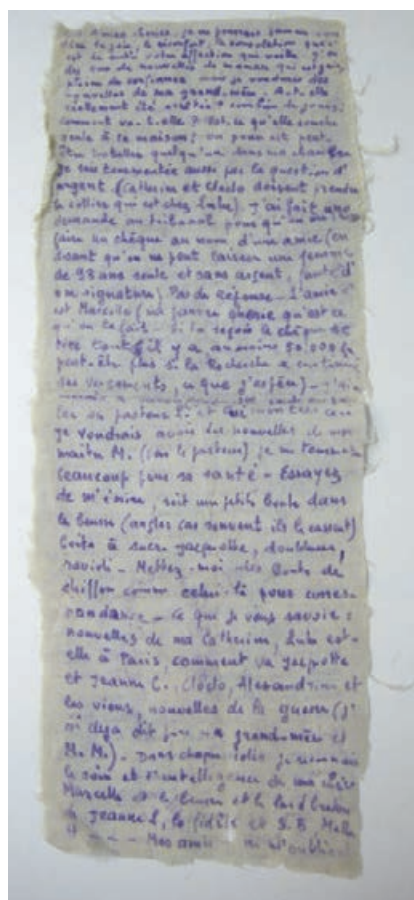 mes amies chéries, je ne pourrais jamais vous
dire la joie, le réconfort, la consolation que c'
est de sentir votre affection qui veille. J'ai
des nouvelles de maman qui est
pleine de confiance mais je voudrais des
nouvelles de ma grand-mère. A-t-elle
réellement été combien de jours,
comment va-t-elle ? Est-ce qu'elle couche
seule à la maison ; on pourrait peut-
être installer quelqu'un dans ma chambre
je suis tourmentée aussi par la question d'
argent (Catherine et Clodo doivent prendre
le collier qui est chez Lube) J'ai fait une
demande au tribunal pour qu'on
faire un chèque au nom d'une amie (en
disant qu'on ne peut laisser une femme
de 93 ans seule et sans argent, faute d'
une signature) Pas de réponse - L'amie
est Marcelle (ma pauvre chérie qu'est ce
qu'on te fait - Si tu reçois le chèque de
tire tout il y a au moins 50.000 fr
peut-être plus si la Recherche a continué
ses versements, ce que j'espère) - j'ai
le pasteur
je voudrais avoir des nouvelles de mon
maître M. (par le pasteur) je me tourmente
beaucoup pour sa santé - Essayez
de m'écrire, soit un petit bout dans
le beurre (angles car souvent ils le cassent)
boîte à sucre jaquette, doublure,
ravioli - Mettez-moi des bouts de
chiffon comme celui-là pour corres-
pondance - Ce que je veux savoir :
nouvelles de ma Catherine, Lube est-
elle à Paris, comment va Jacquotte
et Jeanne C., Clodo, Alexandrine et
les vieux, nouvelles de la guerre (j'
ai déjà dit pour ma grand-mère et
M. M.) - Dans chaque colis je reconnais
le soin et l'intelligence de ma chère
Marcelle et le beurre et le lard
de Jeanne L, la fidèle et S. B.
et - - - Mes amies ne m'oubliez